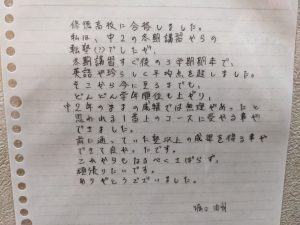 修徳高校に合格しました。
私は、中2の冬期講習からの
転塾(?)でしたが、
冬期講習すぐ後の3学期期末で、
英語が珍らしく平均点を超しました。
そこから今に至るまでも、
どんどん学年順位も上がり、
中2年のままの成績では無理であったと
思われる1番上のコースに受かる事が
できました。
前に通っていた塾以上の成果を得る事が
できて良かったです。
これからもなるべくさぼらず、
頑張りたいです。
ありがとうございました。